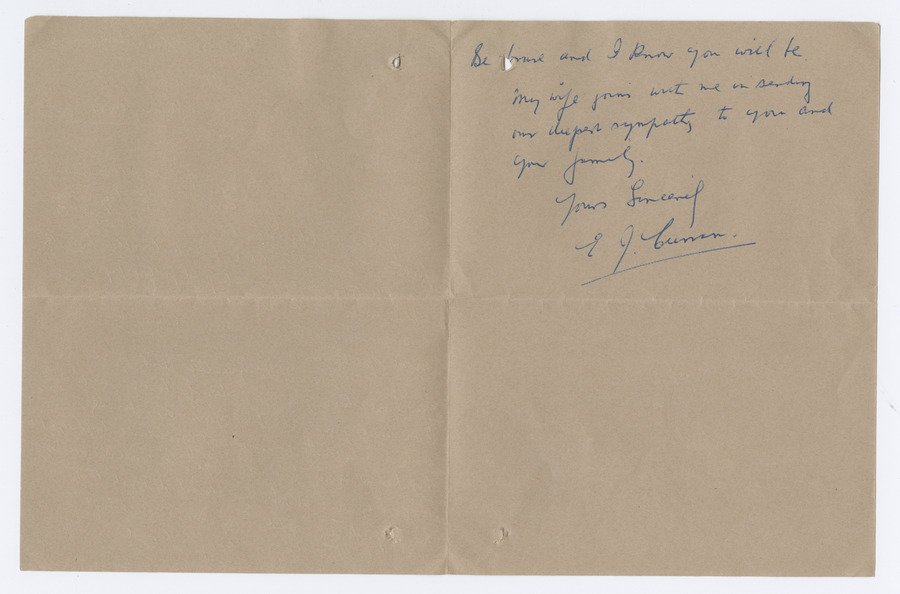 Be brave and I know you will be.
My wife joins with me in sending
our deepest sympathy to you and
your family.
Yours Sincerely
E. J. Curran.